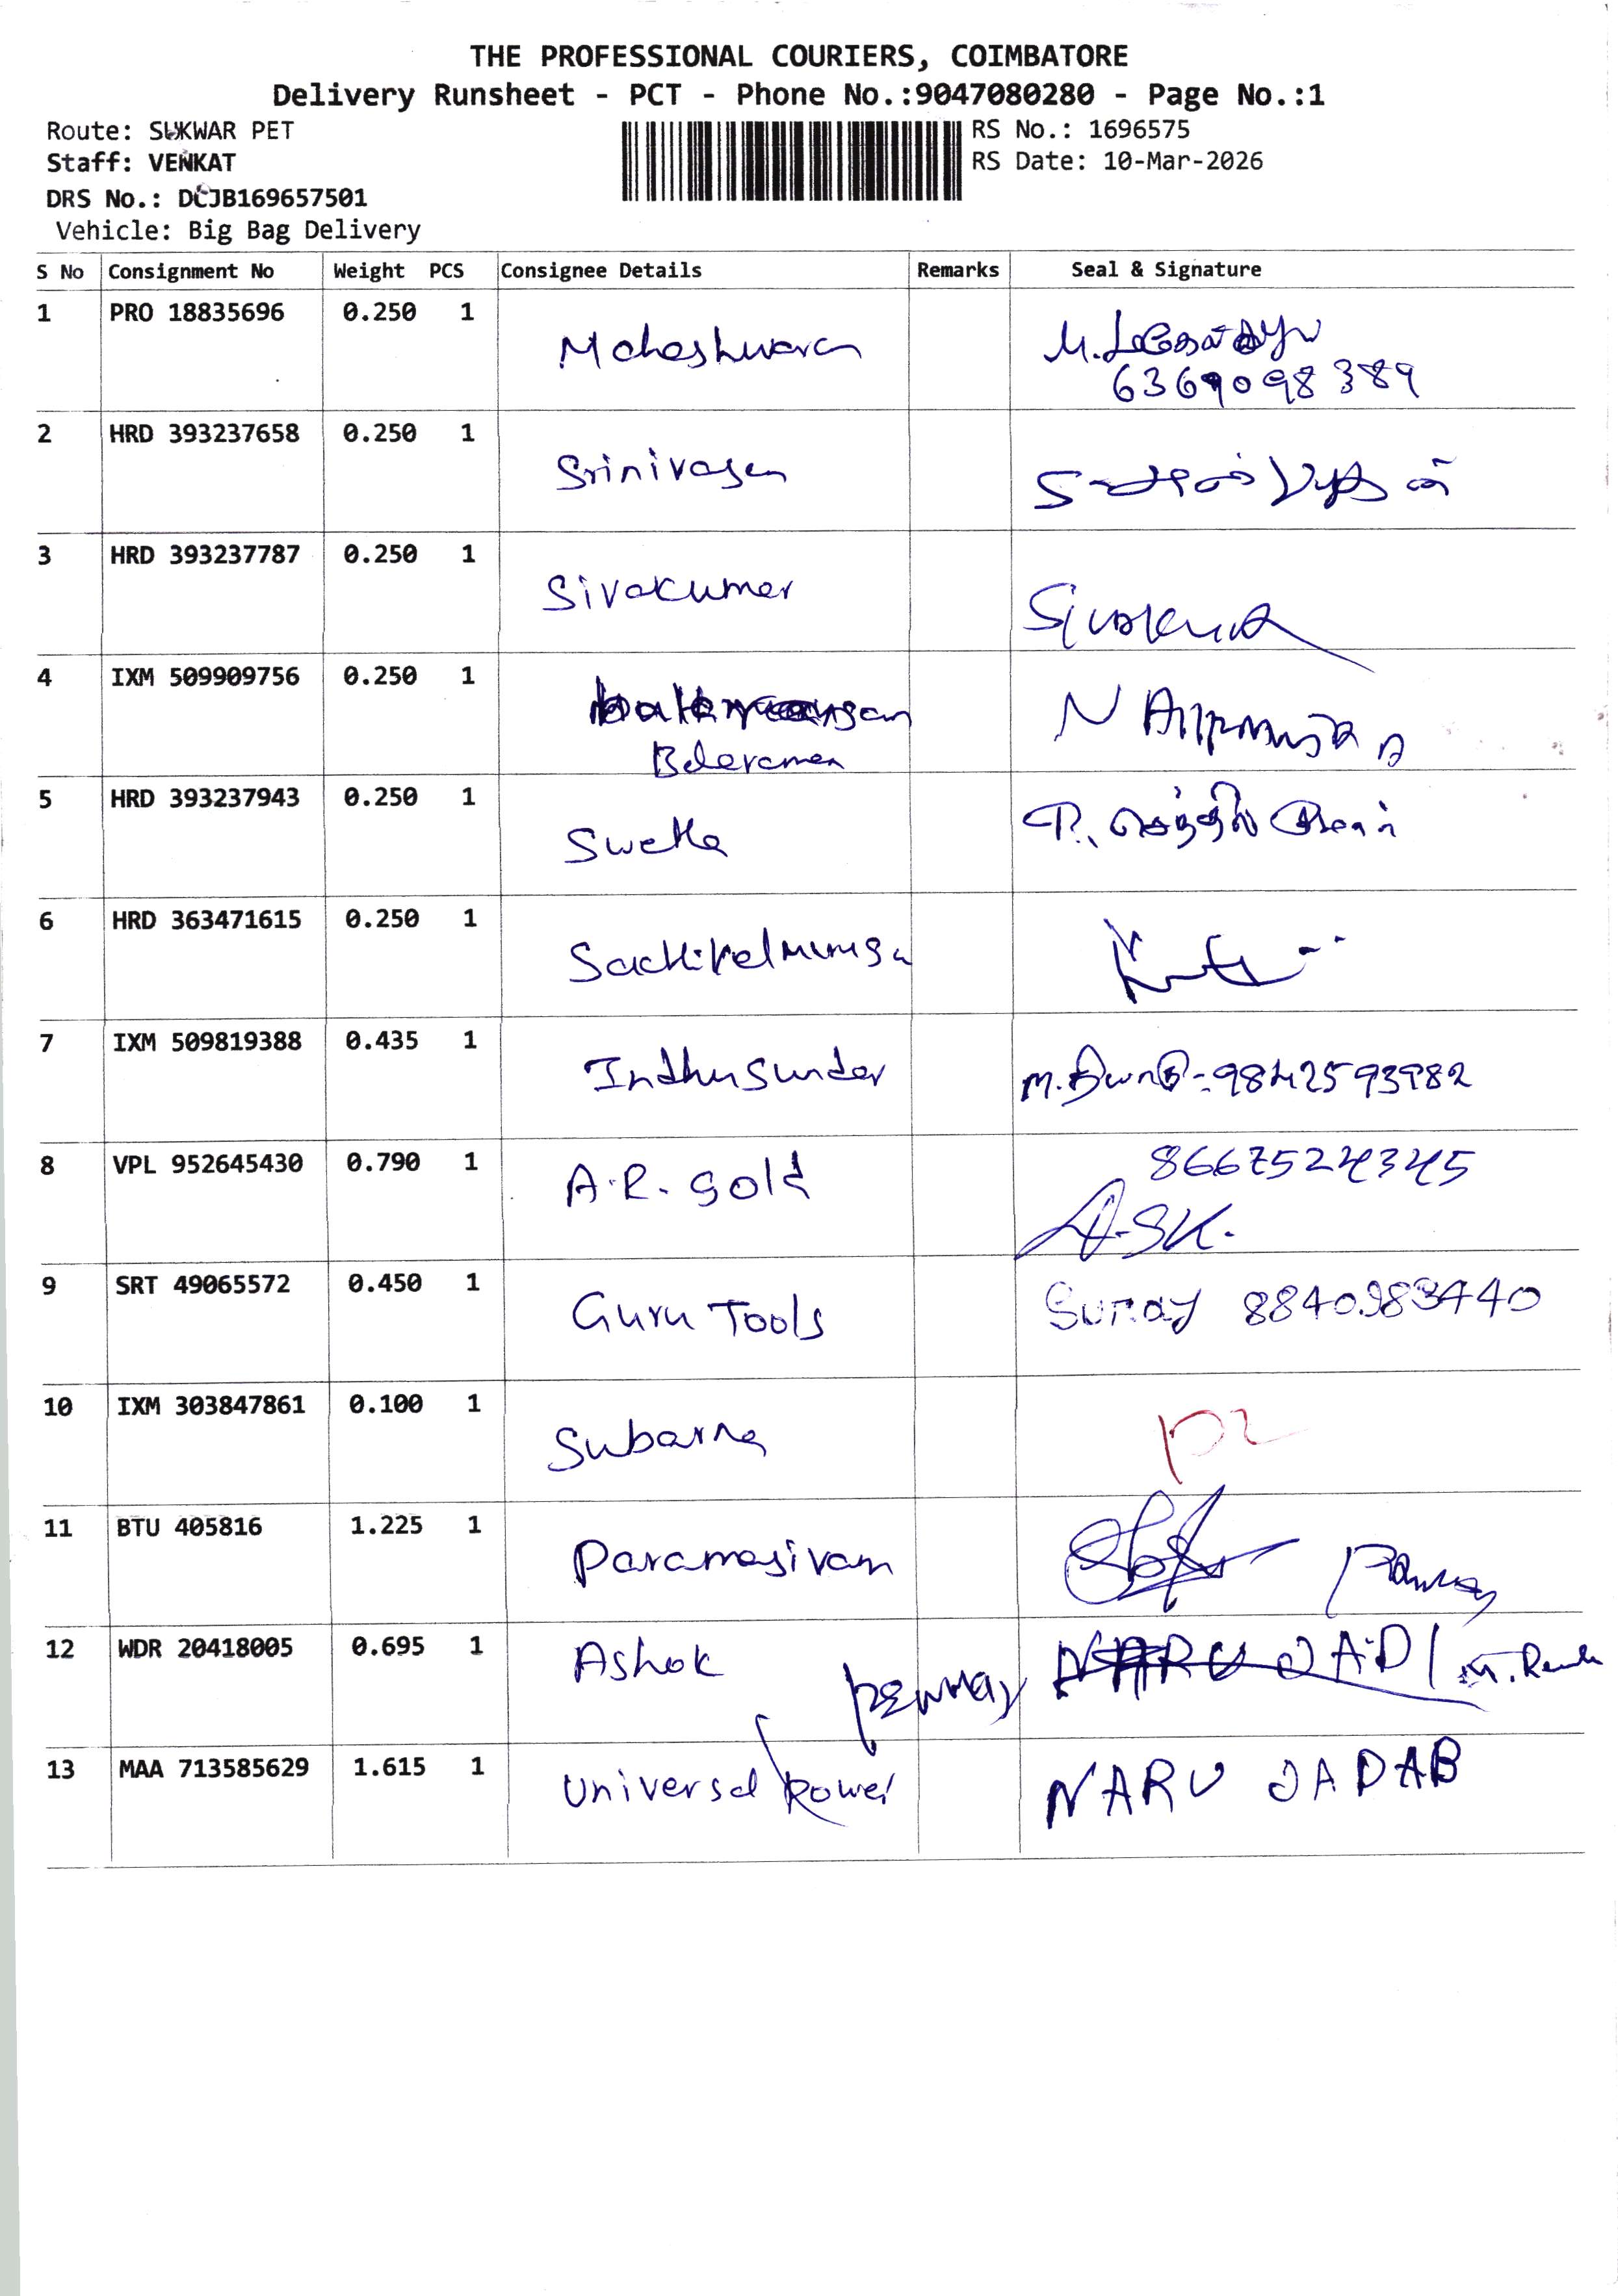 THE PROFESSIONAL COURIERS, COIMBATORE
Delivery Runsheet - PCT - Phone No.:9047080280 - Page No.:1
Route: SUKWAR PET
RS No.: 1696575
Staff: VENKAT
RS Date: 10-Mar-2026
DRS No.: DCJB169657501
Vehicle: Big Bag Delivery
S No Consignment No Weight PCS Consignee Details Remarks Seal & Signature
1 PRO 18835696 0.250 1 Maheshwaran
6369098389
2 HRD 393237658 0.250 1 Srinivasan
3 HRD 393237787 0.250 1 Sivakumar
4 IXM 509909756 0.250 1
Balaraman
5 HRD 393237943 0.250 1 Swetha
6 HRD 363471615 0.250 1 Sacthivelmuruga
7 IXM 509819388 0.435 1 Indhusundar 9842593982
8 VPL 952645430 0.790 1 A.R. Gold 8667524345
A.SK.
9 SRT 49065572 0.450 1 Guru Tools Suraj 8840983440
10 IXM 303847861 0.100 1 Subarna
11 BTU 405816 1.225 1 Paramasivam
12 WDR 20418005 0.695 1 Ashok
13 MAA 713585629 1.615 1 Universal Power NARU JADAB